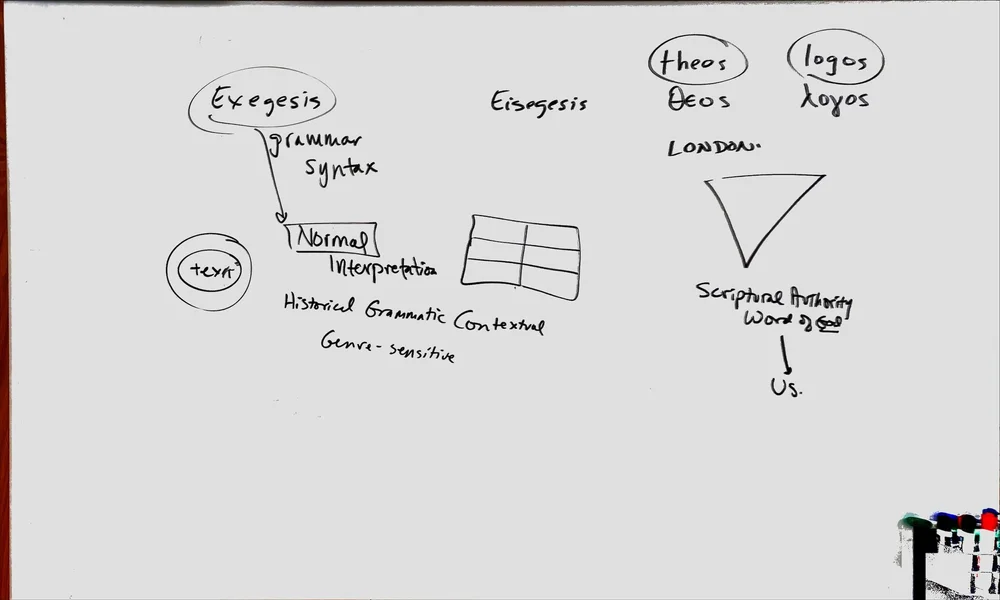 Exegesis
grammar
syntax
Normal
Interpretation
text
Historical Grammatic Contextual
Genre-sensitive
Eisegesis
theos
logos
θεος
λογος
LONDON.
Scriptural Authority
Word of God
Us.